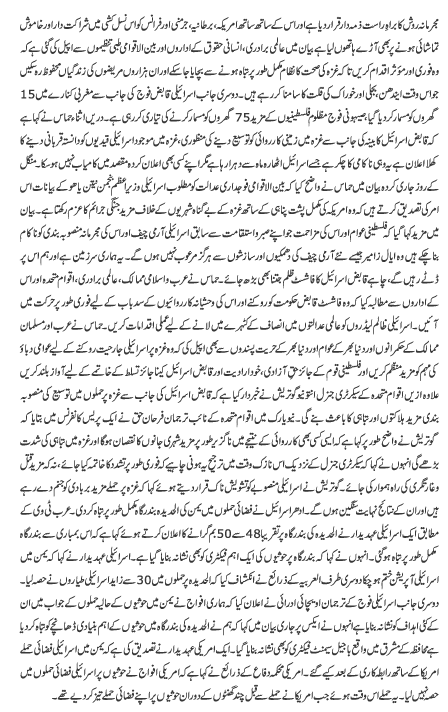 مجرمانہ روش کا براہِ راست ذمہ دار قرار دیا ہے اور اس کے ساتھ ساتھ امریکہ، برطانیہ، جرمنی اور فرانس کو اس نسل کشی میں شراکت دار اور خاموش
تماشائی ہونے پر بھی آڑے ہاتھوں لیا ہے بیان میں عالمی برادری، انسانی حقوق کے اداروں اور بین الاقوامی طبی تنظیموں سے اپیل کی گئی ہے کہ
وہ فوری اور مؤثر اقدام کریں تاکہ غزہ کی صحت کا نظام مکمل طور پر تباہ ہونے سے بچایا جا سکے اور ان ہزاروں مریضوں کی زندگیاں محفوظ رہ سکیں
جو اس وقت ایندھن، بجلی اور خوراک کی قلت کا سامنا کر رہے ہیں۔ دوسری جانب اسرائیلی قابض فوج کی جانب سے مغربی کنارے میں 15
گھروں کو مسمار کر دیا گیا، جبکہ صیہونی فوج مظلوم فلسطینیوں کے مزید 75 گھروں کو مسمار کرنے کی تیاری کر رہی ہے۔ دریں اثنا حماس نے کہا ہے
کہ قابض اسرائیل کابینہ کی جانب سے غزہ میں زمینی کارروائی کو توسیع دینے کی منظوری، غزہ میں موجود اسرائیلی قیدیوں کو دانستہ قربانی دینے کا
کھلا اعلان ہے یہ وہی ناکامی کا چکر ہے جسے اسرائیل اٹھارہ ماہ سے دہرا رہا ہے مگر اپنے کسی بھی اعلان کردہ مقصد میں کامیاب نہیں ہو سکا۔ منگل
کے روز جاری کردہ بیان میں حماس نے واضح کیا کہ بین الاقوامی فوجداری عدالت کو مطلوب اسرائیلی وزیراعظم بنجمن نیتن یاھو کے بیانات اس
امر کی تصدیق کرتے ہیں کہ وہ امریکہ کی مکمل پشت پناہی کے ساتھ غزہ کے بے گناہ شہریوں کے خلاف مزید جنگی جرائم کا عزم رکھتا ہے۔ بیان
میں مزید کہا گیا کہ فلسطینی عوام اور اس کی مزاحمت جو اپنے صبر و استقامت سے سابق اسرائیلی آرمی چیف اور اس کی مجرمانہ منصوبہ بندی کو ناکام
بنا چکے ہیں وہ ایال زامیر جیسے نئے آرمی چیف کی دھمکیوں اور سازشوں سے ہرگز مرعوب نہیں ہوں گے۔ یہ ہماری سرزمین ہے اور ہم اس پر
ڈٹے رہیں گے، چاہے قابض اسرائیل کا فاشسٹ ظلم جتنا بھی بڑھ جائے۔ حماس نے عرب و اسلامی ممالک، عالمی برادری، اقوام متحدہ اور اس
کے اداروں سے مطالبہ کیا کہ وہ فاشسٹ قابض حکومت کو روکنے اور اس کی وحشیانہ کارروائیوں کے سدباب کے لیے فوری طور پر حرکت میں
آئیں۔ اسرائیلی ظالم لیڈروں کو عالمی عدالتوں میں انصاف کے کٹہرے میں لانے کے لیے عملی اقدامات کریں۔ حماس نے عرب اور مسلمان
ممالک کے حکمرانوں اور دنیا بھر کے عوام اور دنیا بھر کے حریت پسندوں سے بھی اپیل کی کہ وہ غزہ پر اسرائیلی جارحیت روکنے کے لیے عوامی دباؤ
کی مہم کو مزید منظم کریں اور فلسطینی قوم کے جائز حقِ آزادی، خود ارادیت اور قابض اسرائیل کے ناجائز تسلط کے خاتمے کے لیے آواز بلند کریں
علاوہ ازیں اقوام متحدہ کے سیکرٹری جنرل انتونیو گوتریش نے خبردار کیا ہے کہ قابض اسرائیل کی جانب سے غزہ پر حملوں میں توسیع کی منصوبہ
بندی مزید ہلاکتوں اور تباہی کا باعث بنے گی۔ نیویارک میں اقوام متحدہ کے نائب ترجمان فرحان حق نے ایک پریس کانفرنس میں بتایا کہ
گوتریش نے واضح طور پر کہا ہے کہ ایسی کسی بھی کارروائی کے نتیجے میں ناگزیر طور پر مزید شہری جانوں کا نقصان ہوگا اور غزہ میں تباہی کی شدت
بڑھے گی انہوں نے کہا کہ سیکرٹری جنرل کے نزدیک اس نازک وقت میں ترجیح یہ ہونی چاہیے کہ فوری طور پر تشدد کا خاتمہ کیا جائے، نہ کہ مزید قتل
و غارتگری کی راہ ہموار کی جائے۔ گوتریش نے اسرائیلی منصوبے کو تشویش ناک قرار دیتے ہوئے کہا کہ غزہ پر حملے مزید بربادی کو جنم دے رہے
ہیں اور ان کے نتائج نہایت سنگین ہوں گے۔ ادھر اسرائیل نے فضائی حملوں میں یمن کی الحدیدہ بندرگاہ مکمل طور پر تباہ کر دی۔ عرب ٹی وی کے
مطابق ایک اسرائیلی عہدیدار نے الحدیدہ کی بندرگاہ پر تقریباً 48 سے 50 بم گرانے کا اعلان کرتے ہوئے کہا ہے کہ اس بمباری سے بندرگاہ
مکمل طور پر تباہ ہو گئی۔ انہوں نے کہا کہ بندرگاہ پر حوثیوں کی ایک اہم فیکٹری کو بھی نشانہ بنایا گیا ہے۔ ایک اسرائیلی عہدیدار نے کہا کہ یمن میں
اسرائیلی آپریشن ختم ہو چکا دوسری طرف العربیہ کے ذرائع نے انکشاف کیا کہ الحدیدہ پر حملوں میں 30 سے زاید اسرائیلی طیاروں نے حصہ لیا۔
دوسری جانب اسرائیلی فوج کے ترجمان اویچائی ادرائی نے اعلان کیا کہ ہماری افواج نے یمن میں حوثیوں کے حالیہ حملوں کے جواب میں ان
کے کئی اہداف کو نشانہ بنایا ہے انہوں نے ایکس پر جاری بیان میں کہا کہ ہم نے الحدیدہ کی بندرگاہ میں حوثیوں کے اہم بنیادی ڈھانچے کو تباہ کر دیا
ہے محافظہ کے مشرق میں واقع باجیل سیمنٹ فیکٹری کو بھی نشانہ بنایا گیا۔ ایک اسرائیلی عہدیدار نے کہا ہے کہ یمن میں اسرائیلی فضائی حملے
امریکا کے ساتھ رابطہ کاری کے بعد کیے گئے۔ امریکی محکمہ دفاع کے ذرائع نے کہا ہے کہ امریکی افواج نے حوثیوں پر اسرائیلی فضائی حملوں میں
حصہ نہیں لیا۔ یہ حملے اس وقت ہوئے جب امریکا نے حملے سے قبل چند گھنٹوں کے دوران حوثیوں پر اپنے فضائی حملے تیز کر دیے تھے۔